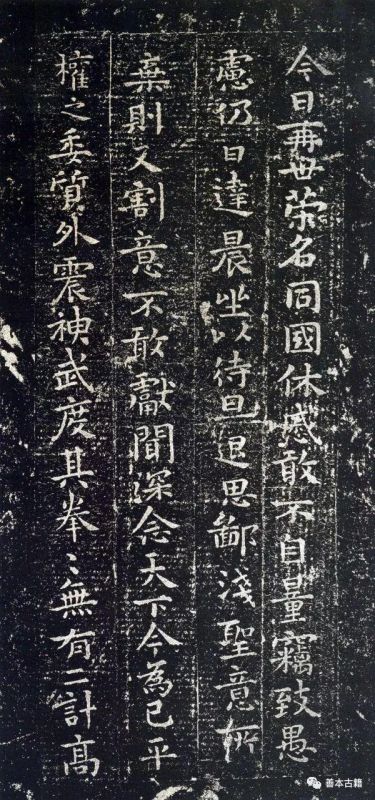 今日再世榮名同國休慼敢不自量竊致愚
慮仍日達晨坐以待旦退思鄙淺聖意所
棄則又割意不敢獻聞深念天下今為已平
權之委質外震神武度其拳〻無有二計高
善本古籍